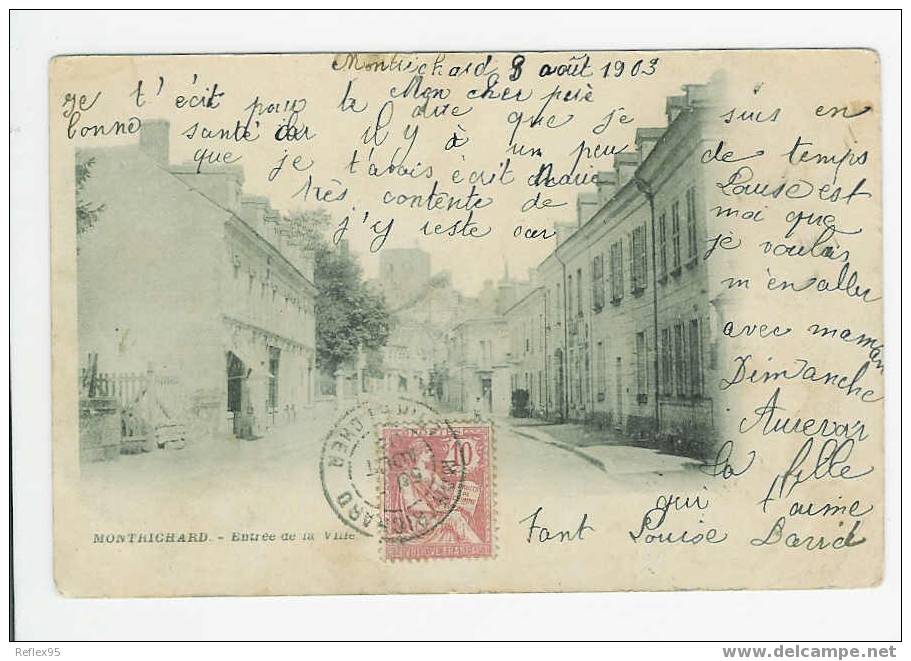 Montrichard 8 août 1903
Mon cher père
je t'écit pour te dire que je suis en
bonne santé car il y à un peu de temps
que je t'avais écit Louise est
très contente de moi que
j'y reste car je voulais
m'en aller
avec maman
Dimanche
Aurevoir
ta fille
qui t'aime
tant Louise David
MONTRICHARD. - Entrée de la Ville
MONTRICHARD
CHER
AOUT
03
10
REPUBLIQUE FRANÇAISE
Reflex95
www.delcampe.net